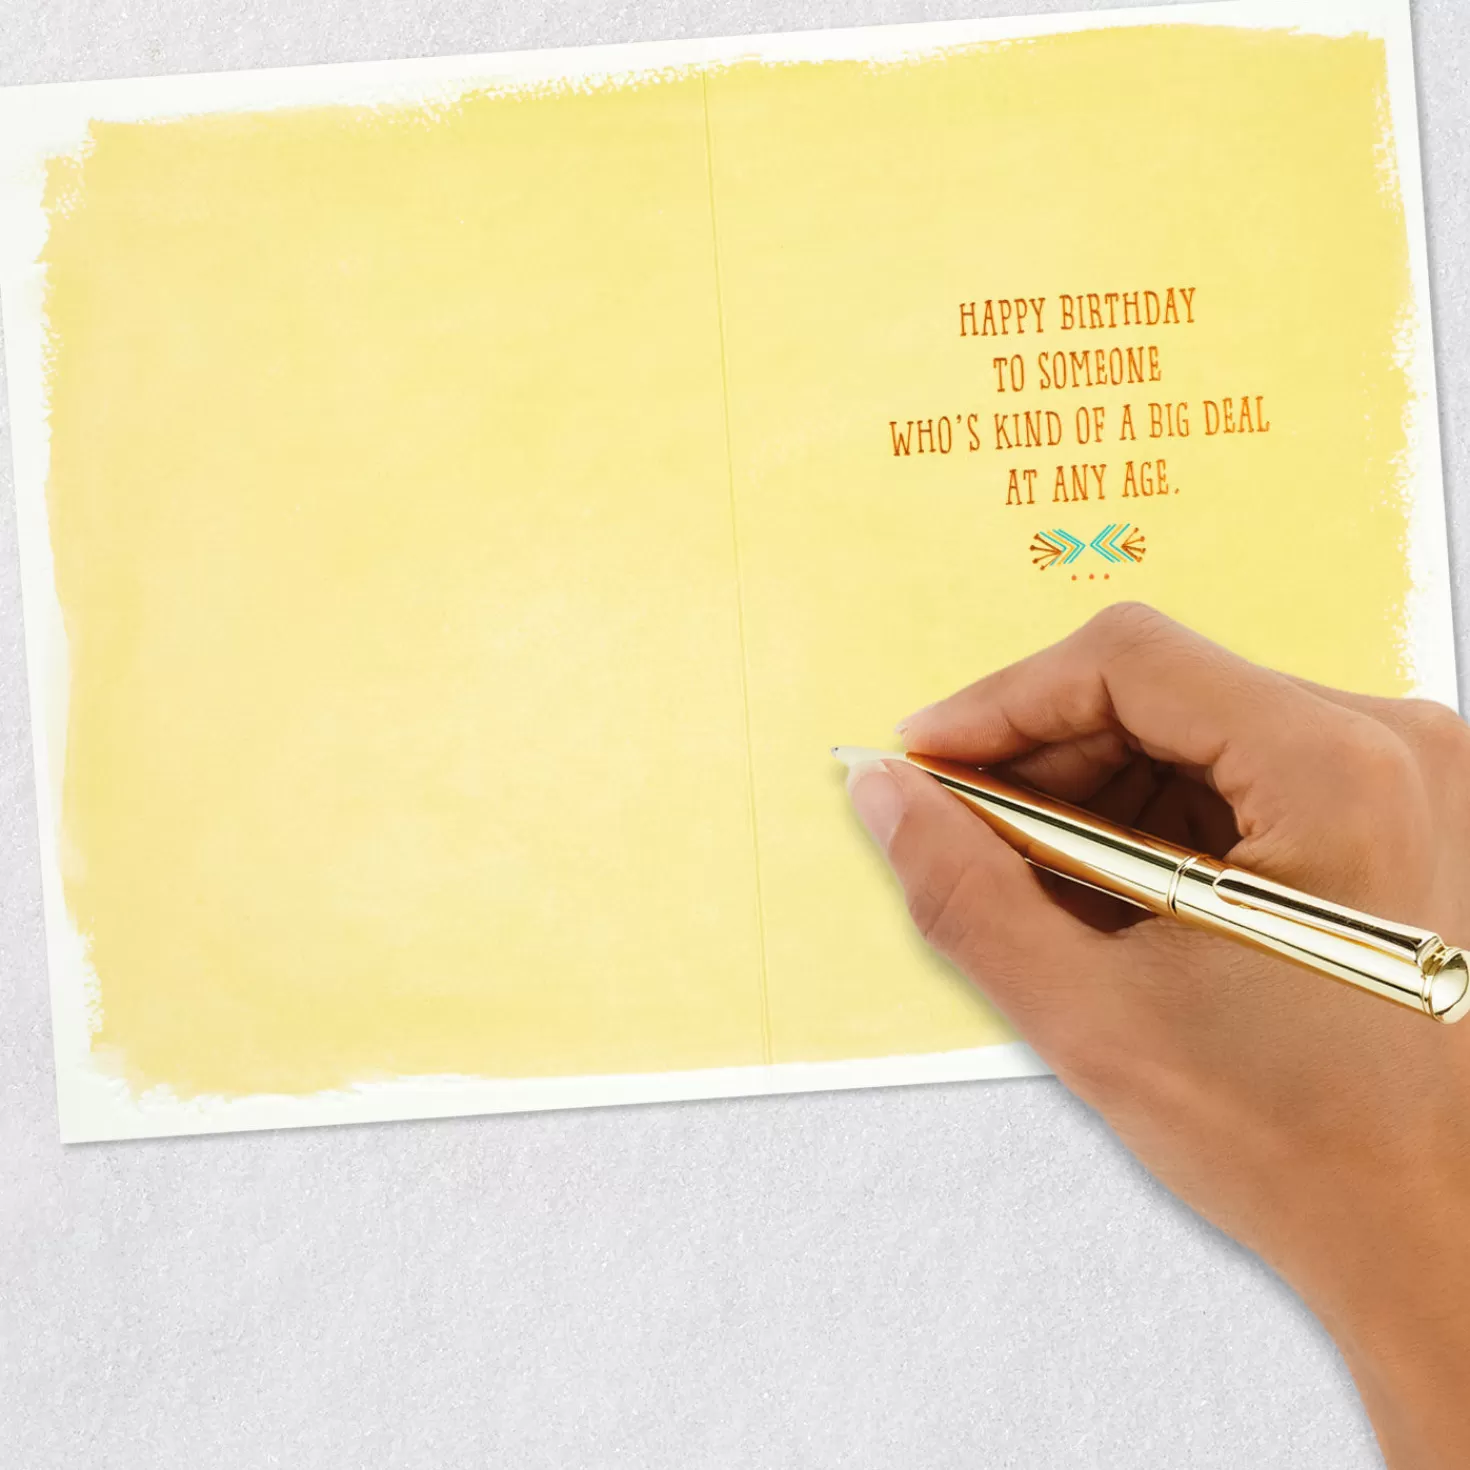 HAPPY BIRTHDAY
TO SOMEONE
WHO'S KIND OF A BIG DEAL
AT ANY AGE.